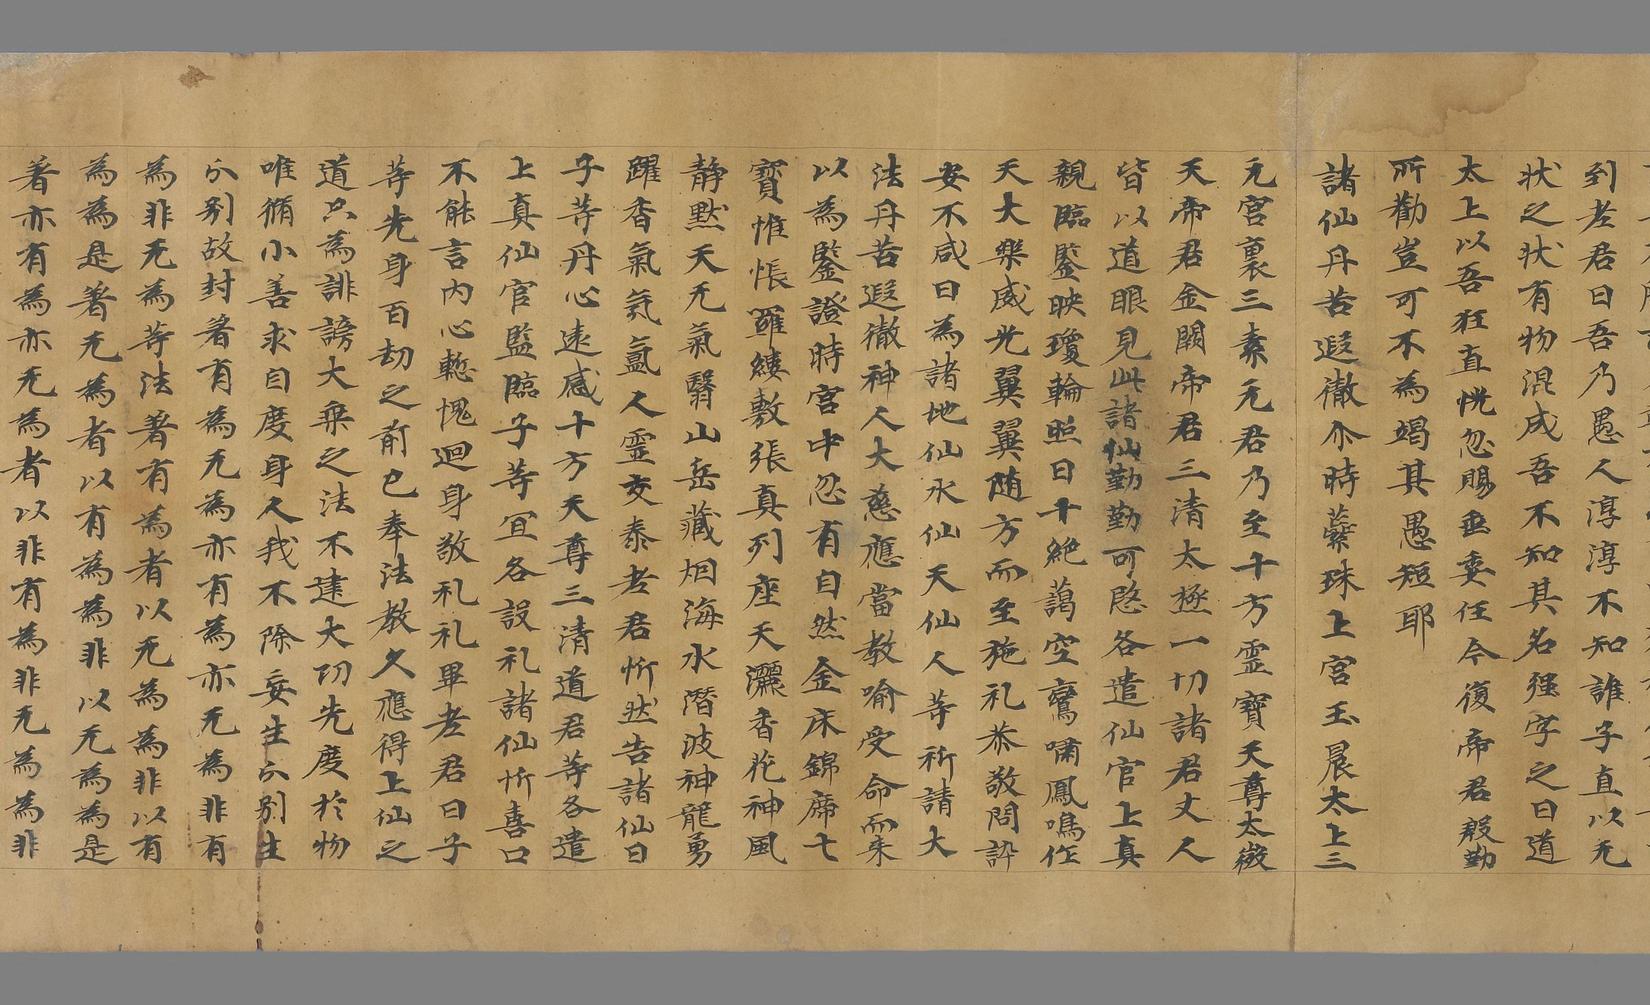 到老君曰吾乃愚人淳淳不知誰子直以无
狀之狀有物混成吾不知其名强字之曰道
太上以吾狂直恍忽賜垂委任今復帝君殷勤
所勸豈可不為竭其愚短耶
諸仙丹苦遐徹尒時蘂珠上宮玉晨太上三
元宮裏三素元君乃至十方靈寶天尊太微
天帝君金闕帝君三清太極一切諸君丈人
皆以道眼見此諸仙勤勤可愍各遣仙官上真
親臨鑒映瓊輪照日千絶藹空鸞嘯鳳鳴作
天大樂威光翼翼随方而至施礼恭敬問訊
安不咸曰為諸地仙水仙天仙人等祈請大
法丹苦遐徹神人大慈應當教喻受命而来
以為鑒證時宮中忽有自然金床錦席七
寶帷帳羅縷敷張真列座天灑香花神風
静默天无氣翳山岳藏烟海水潛波神龍勇
躍香氣氛氳人靈交泰老君忻然告諸仙曰
子等丹心遠感十方天尊三清道君等各遣
上真仙官監臨子等宜各設礼諸仙忻喜口
不能言内心慙愧迴身敬礼礼畢老君曰子
等先身百劫之前已奉法教久應得上仙之
道只為誹謗大乘之法不建大功先度於物
唯脩小善求自度身人我不除妄生分别生
分别故封著有為无為亦有為亦无為非有
為非无為等法著有為者以无為為非以有
為為是著无為者以有為為非以无為為是
著亦有為亦无為者以非有為非无為為非